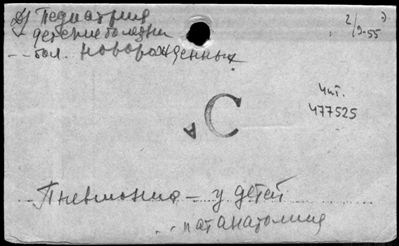 Педиатрия
2/IX-55
детские болезни
-- бол. новорожденных
Чит.
477525
С
А
Пневмония – у детей
патанатомия